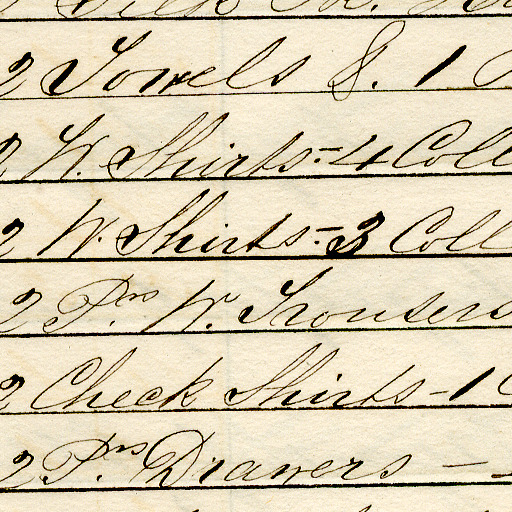 2 Towels S. 1
2 W. Shirts = 4 Coll
2 W. Shirts = 3 Coll
2 Prs W. Trousers
2 Check Shirts - 1 C
2 Prs Drawers -